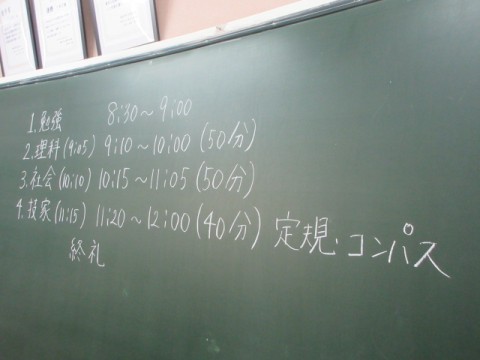 1.勉強 8:30~9:00
2.理科(9:05) 9:10~10:00(50分)
3.社会(10:10) 10:15~11:05(50分)
4.技家(11:15) 11:20~12:00(40分) 定規・コンパス
終礼